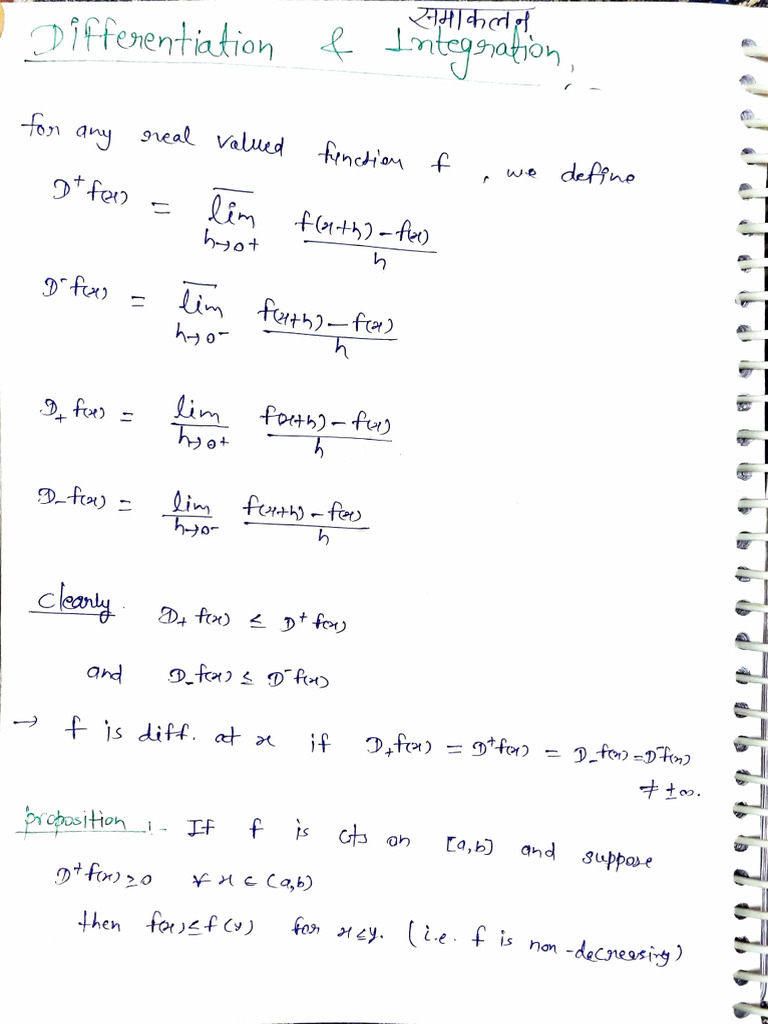 समाकलन
Differentiation & Integration :-
for any real valued function f, we define
D⁺f(x) = \overline{lim}_{h→0+} \frac{f(x+h)-f(x)}{h}
D⁻f(x) = \overline{lim}_{h→0-} \frac{f(x+h)-f(x)}{h}
D₊f(x) = \underline{lim}_{h→0+} \frac{f(x+h)-f(x)}{h}
D₋f(x) = \underline{lim}_{h→0-} \frac{f(x+h)-f(x)}{h}
Clearly. D₊f(x) ≤ D⁺f(x)
and D₋f(x) ≤ D⁻f(x)
→ f is diff. at x if D₊f(x) = D⁺f(x) = D₋f(x) = D⁻f(x)
≠ ±∞.
proposition :- If f is cts on [a,b] and suppose
D⁺f(x) ≥ 0 ∀ x ∈ (a,b)
then f(x) ≤ f(y) for x ≤ y. (i.e. f is non-decreasing)